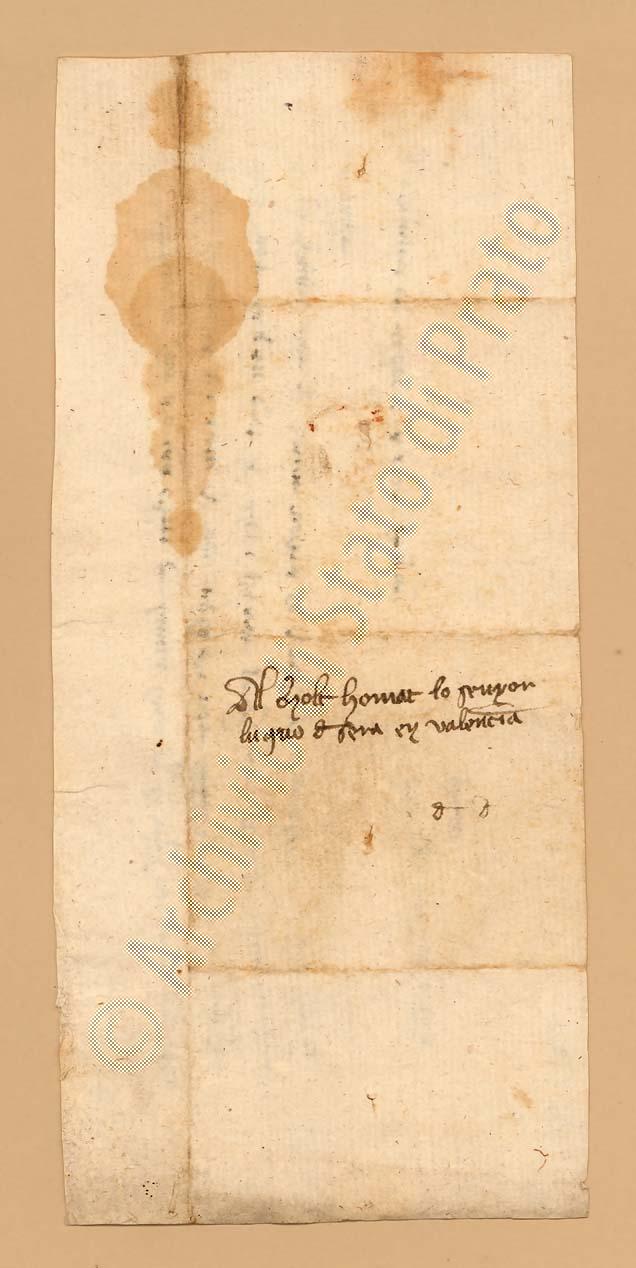 Al molt honrat lo senyor
luquo d sera en valencia
d d
© Archivio di Stato di Prato